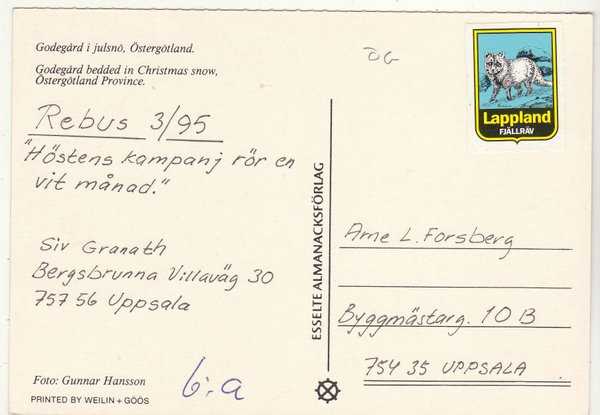 Godegård i julsnö, Östergötland.
Godegård bedded in Christmas snow,
Östergötland Province.
Rebus 3/95
"Höstens kampanj rör en
vit månad."
Siv Granath
Bergsbrunna Villaväg 30
757 56 Uppsala
Foto: Gunnar Hansson
PRINTED BY WEILIN + GÖÖS
6:a
ESSELTE ALMANACKSFÖRLAG
ÖG
Lappland
FJÄLLRÄV
Arne L. Forsberg
Byggmästarg. 10 B
754 35 UPPSALA